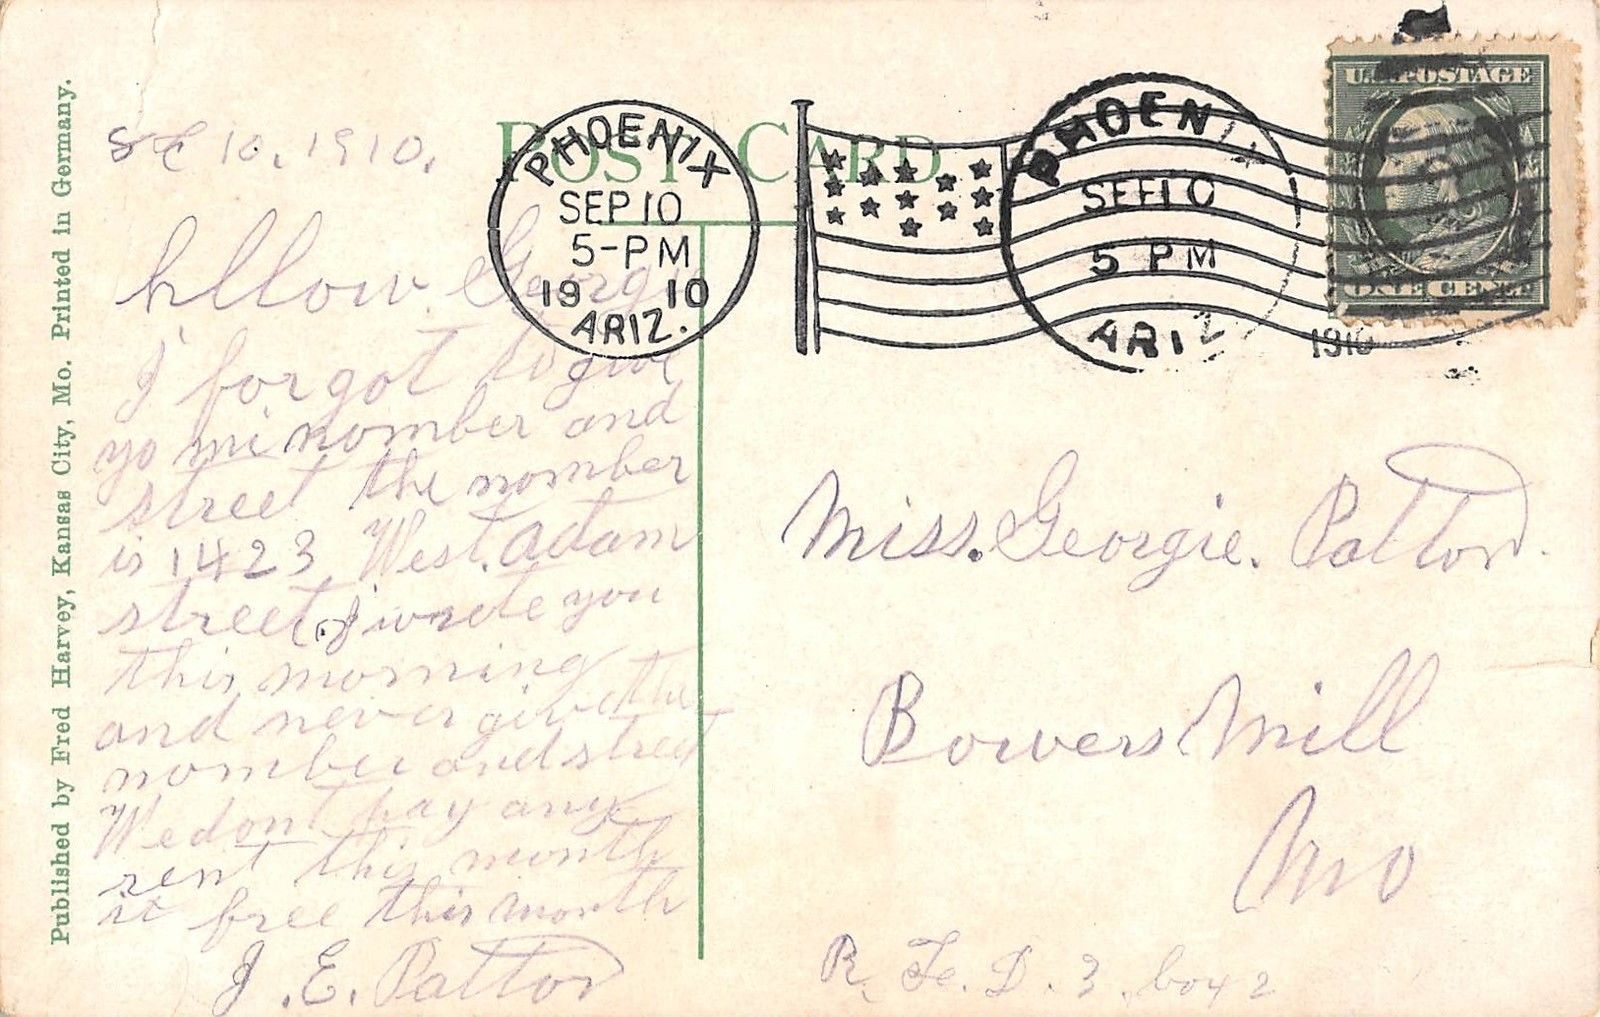 Published by Fred Harvey, Kansas City, Mo. Printed in Germany.
POST CARD
10, 1910.
hllow. Georgie
I forgot to give
yo mi nomber and
street the nomber
is 1423 West. adam
street. I wrote you
this morning
and never give the
nomber and street
We dont pay any
rent this month
it free this month
J. E. Patton
PHOENIX
SEP 10
5-PM
19 10
ARIZ.
PHOENIX
SEP 10
5 PM
ARIZ
1910
U.S. POSTAGE
ONE CENT
Miss. Georgie. Patton.
Bowers Mill
Mo
R. F. D. 3. box 2